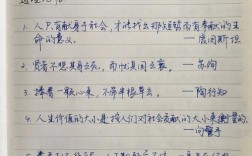 1. 人只有献身于社会,才能找出那短暂而有奉献的生
命的意义。 ——爱因斯坦
2. 贤者不悲其身之死,而忧其国之衰。——苏洵
3. 捧着一颗心来,不带半根草去。——陶行知
4. 人生价值的大小是按人们对社会贡献的大小来衡量的。
——向警予